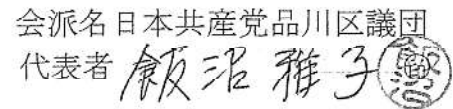 会派名日本共産党品川区議団
代表者 飯沼雅子 印